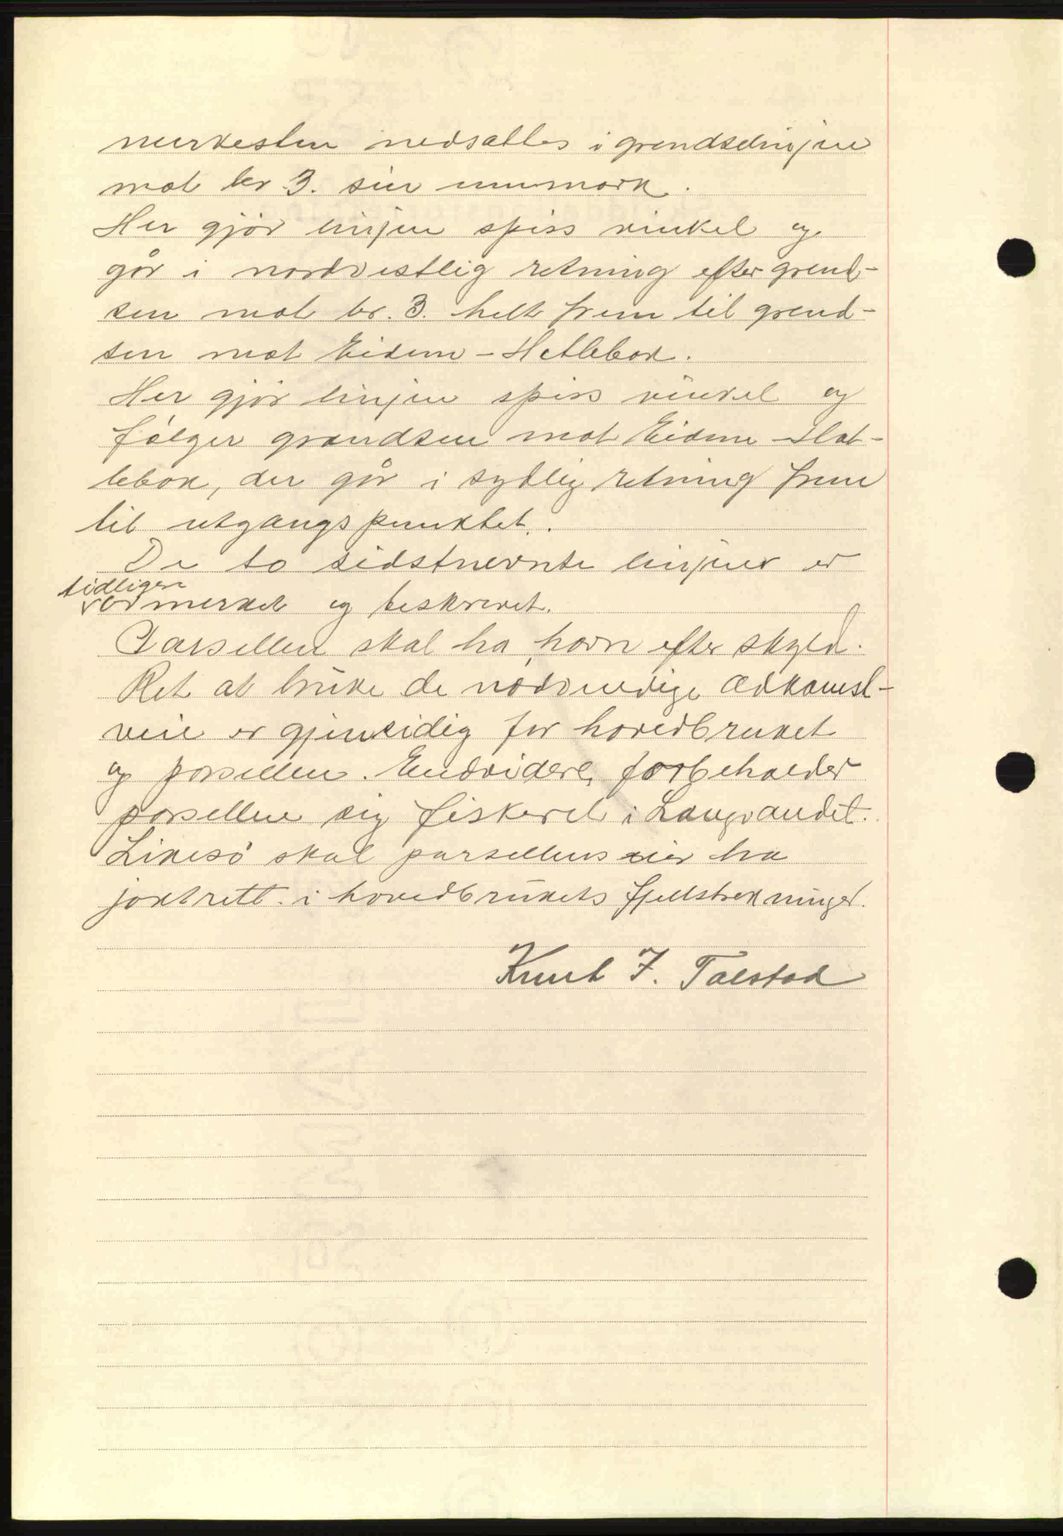 merkesten nedsattes i grendselinjen
mot br 3. sin innmark.
Her gjör linjen spiss vinkel og
går i nordvestlig retning efter grend-
sen mot br. 3. helt frem til grend-
sen mot Eidem - Hetlebak.
Her gjör linjen spiss vinkel og
følger grændsen mot Eidem - Het-
lebak, der går i sydlig retning frem
til utgangspunktet.
De to sidstnevnte linjer er
tidligere
opmerket og beskrevet.
Parsellen skal ha havn efter skyld.
Ret at bruke de nødvendige adkomst-
veie er gjensidig for hovedbruket
og parsellen. Endvidere forbeholder
parsellen sig fiskeret i Langvandet.
Likesö skal parsellens eier ha
jaktrett i hovedbrukets fjellstrekninger.
Knut J. Talstad